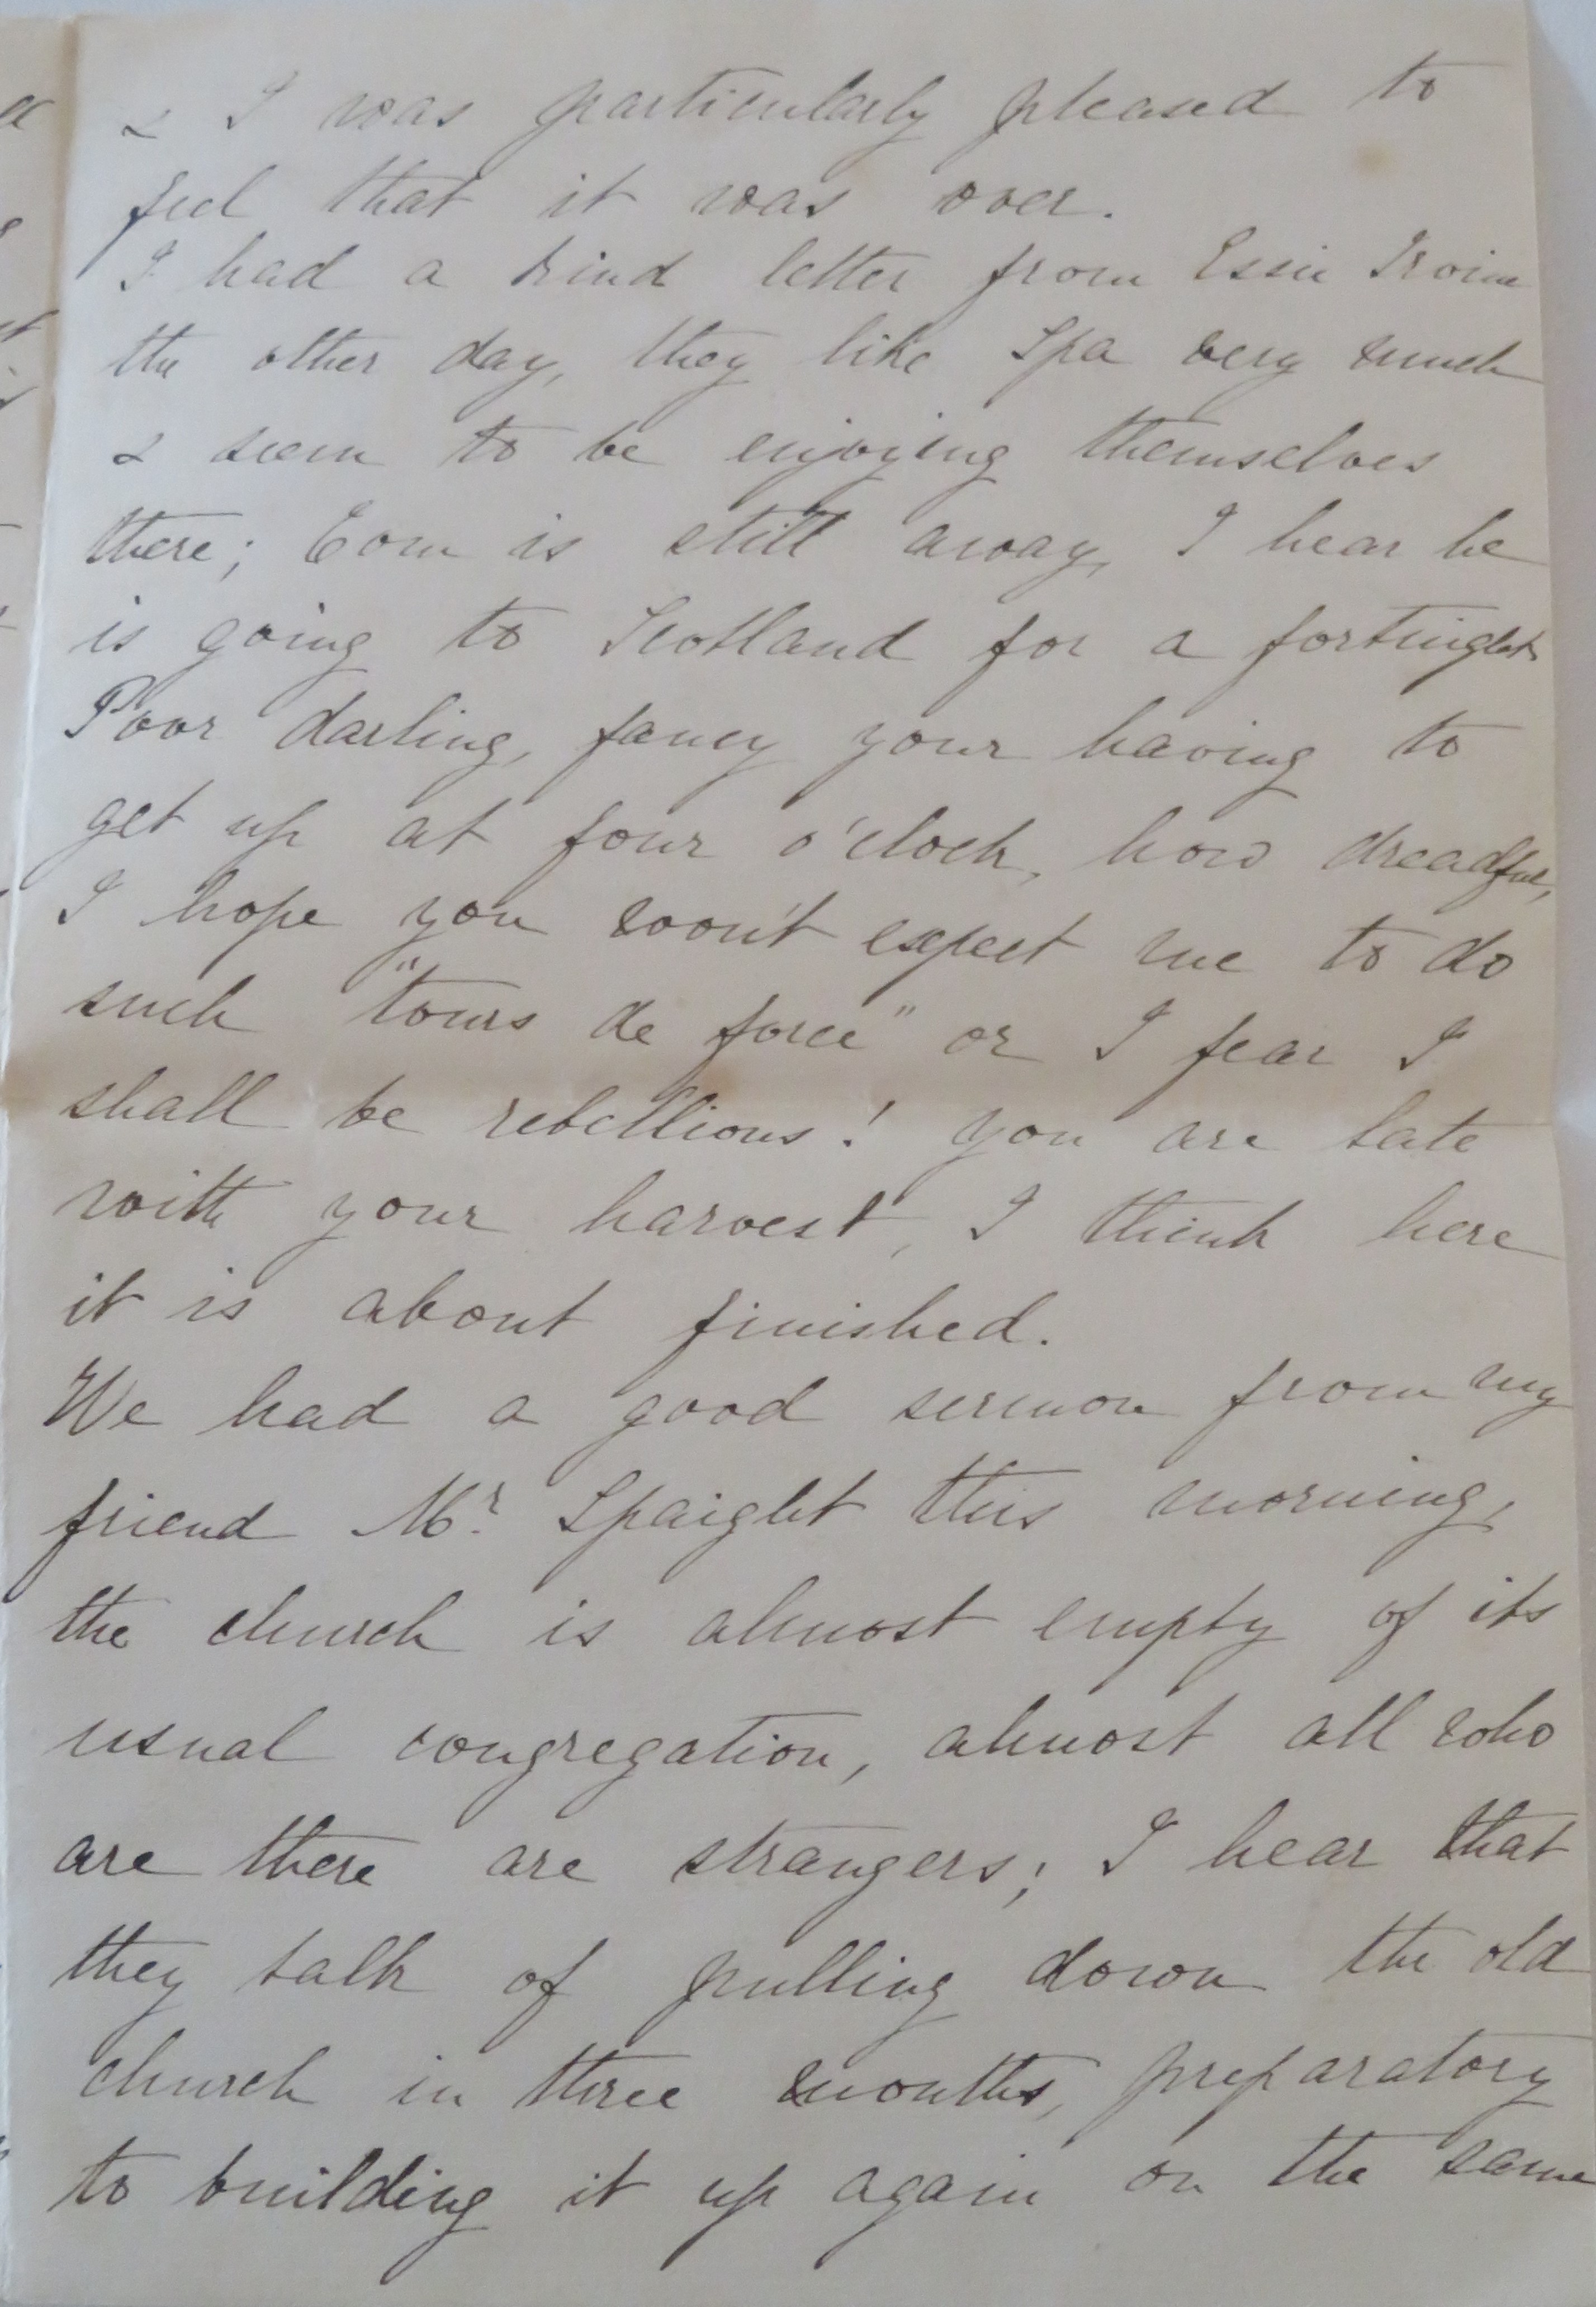 & I was particularly pleased to
feel that it was over.
I had a kind letter from Essie Irvine
the other day, they like Spa very much
& seem to be enjoying themselves
there; Tom is still away, I hear he
is going to Scotland for a fortnight
Poor darling, fancy your having to
get up at four o'clock, how dreadful,
I hope you won't expect me to do
such "tours de force" or I fear I
shall be rebellious! you are late
with your harvest, I think here
it is about finished.
We had a good sermon from my
friend Mr. Spaight this morning,
the church is almost empty of its
usual congregation, almost all who
are there are strangers; I hear that
they talk of pulling down the old
church in three months, preparatory
to building it up again on the same